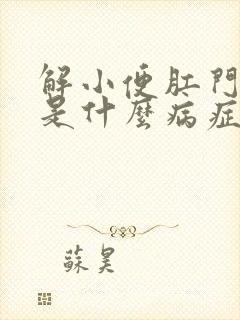 解小便肛門
是什麼病症
蘇昊